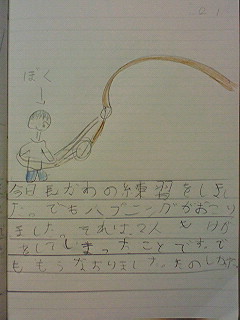 ぼく
今日長なわの練習をしまし
た。でもハプニングがおこり
ました。それは、2人もけが
をしてしまったことです。で
ももうなおりました。たのしかった